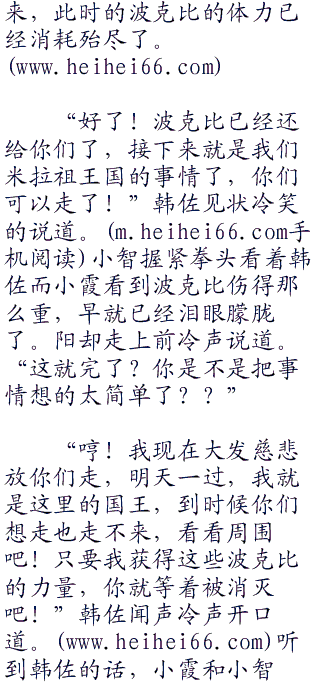 来，此时的波克比的体力已
经消耗殆尽了。
(www.heihei66.com)
“好了！波克比已经还
给你们了，接下来就是我们
米拉祖王国的事情了，你们
可以走了！”韩佐见状冷笑
的说道。(m.heihei66.com手
机阅读)小智握紧拳头看着韩
佐而小霞看到波克比伤得那
么重，早就已经泪眼朦胧
了。阳却走上前冷声说道。
“这就完了？你是不是把事
情想的太简单了？？”
“哼！我现在大发慈悲
放你们走，明天一过，我就
是这里的国王，到时候你们
想走也走不来，看看周围
吧！只要我获得这些波克比
的力量，你就等着被消灭
吧！”韩佐闻声冷声开口
道。(www.heihei66.com)听
到韩佐的话，小霞和小智